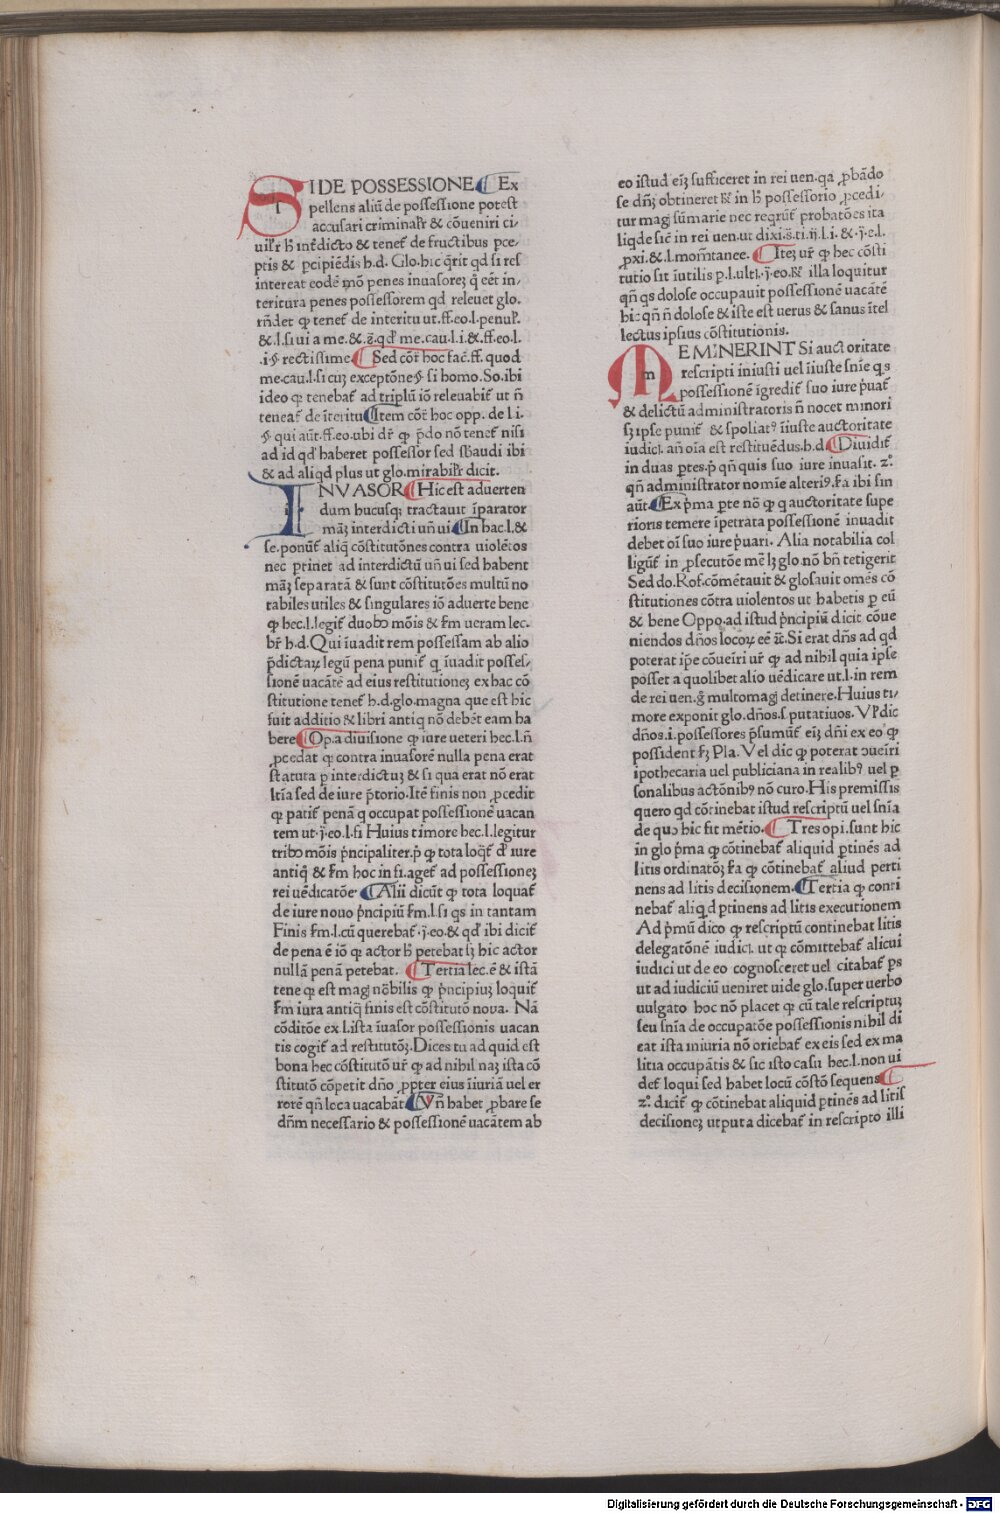 SI DE POSSESSIONE ¶ Ex
pellens aliū de possessione potest
accusari criminalr̄ & cōueniri ci/
uilr̄ h̄ int̄dicto & tenet̄ de fructibus p̄ce/
ptis & p̄cipiēdis h.d. Glo.hic q̄rit qd si res
intereat eodē mō penes inuasoreȝ q̄ eēt in/
teritura penes possessorem qd releuet glo.
rn̄det ꝙ tenet̄ de interitu ut.ff.eo.l.penul̄.
&.l.si ui a me.&.ꝫ.qd̄ me.cau.l.i.&.ff.eo.l.
.i.§ rectissime ¶ Sed cōt̄ hoc fac̄.ff.quod
me.cau.l.si cuȝ exceptōne § si homo. So.ibi
ideo ꝙ tenebat̄ ad triplū iō releuabit̄ ut n̄
teneat̄ de īteritu ¶ Item cōt̄ hoc opp. de l.i.
§ qui aūt.ff.eo.ubi dr̄ ꝙ p̄do nō tenet̄ nisi
ad id qd̄ haberet possessor sed sb̄audi ibi
& ad aliqd plus ut glo.mirabilr̄ dicit.
INVASOR ¶ Hic est aduerten
dum hucusqȝ tractauit īparator
māȝ interdicti un̄ ui ¶ In hac.l.&
se.ponūt̄ aliq̄ cōstitutōnes contra uiolētos
nec ptinet ad interdictū un̄ ui sed habent
māȝ separatā & sunt cōstitutōes multū no
tabiles utiles & singulares iō aduerte bene
ꝙ hec.l.legit̄ duobꝰ mōis & s̄m ueram lec.
br̄ h.d. Qui īuadit rem possessam ab alio
p̄dictaꝝ legū pena punit̄ q̄ īuadit posses/
sionē uacātē ad eius restitutioneȝ ex hac cō
stitutione tenet̄ h.d.glo.magna que est hic
fuit additio & libri antiq nō debēt eam ha
bere ¶ Op.a diuisione ꝙ iure ueteri hec.l.n̄
ꝓcedat ꝙ contra inuasorē nulla pena erat
statuta p interdictuȝ & si qua erat nō erat
lt̄ia sed de iure p̄torio. Itē finis non ꝓcedit
ꝙ patit̄ penā q occupat possessionē uacan
tem ut.j.eo.l.si Huius timore hec.l.legitur
tribꝰ mōis p̄ncipaliter.p̄ ꝙ tota loqt̄ d̄ iure
antiq̄ & s̄m hoc in fi.aget̄ ad possessioneȝ
rei uēdicatōe. ¶ Alii dicūt ꝙ tota loquat̄
de iure nouo p̄ncipiū s̄m.l.si qs in tantam
Finis s̄m.l.cū querebat̄.j.eo.& qd̄ ibi dicit̄
de pena ē iō ꝙ actor h̄ petebat sȝ hic actor
nullā penā petebat. ¶ Tertia lec.ē & istā
tene ꝙ est magȝ nōbilis ꝙ p̄ncipiuȝ loquit̄
s̄m iura antiq̄ finis est cōstitutō noua. Nā
cōditōe ex l.ista īuasor possessionis uacan
tis cogit̄ ad restitutōȝ. Dices tu ad quid est
bona hec cōstitutō ur̄ ꝙ ad nihil naȝ ista cō
stitutō cōpetit dn̄o ꝓpter eius īiuriā uel er
rorē qn̄ loca uacabāt ¶ Vn̄ habet ꝓbare se
dn̄m necessario & possessionē uacātem ab
eo istud eiȝ sufficeret in rei uen.qa ꝓbādo
se dn̄ȝ obtineret S̄ in h̄ possessorio ꝓcedi/
tur magȝ sūmarie nec reqrūt̄ probatōes ita
liqde sic̄ in rei uen.ut dixi.s̄.ti.ij.l.i.&.j.e.l.
ꝓxi.&.l.mom̄tanee. ¶ Iteȝ ur̄ ꝙ hec cōsti
tutio sit iutilis p.l.ulti.j.eo.S̄ illa loquitur
qn̄ qs dolose occupauit possessionē uacātē
hic qn̄ n̄ dolose & iste est uerus & sanus ītel
lectus ipsius cōstitutionis.
MEMINERINT Si auctoritate
rescripti iniusti uel iīuste sn̄ie qs
possessionē īgredit̄ suo iure p̄uat̄
& delictū administratoris n̄ nocet minori
sȝ ipse punit̄ & spoliatꝰ īiuste auctoritate
iudici. an̄ oīa est restituēdus.h.d. ¶ Diuidit̄
in duas ptes.p̄ qn̄ quis suo iure inuasit. 2ꝰ.
qn̄ administrator noīe alteriꝰ.s̄a ibi sin
aūt. ¶ Ex p̄ma pte nō ꝙ q auctoritate supe
rioris temere īpetrata possessionē inuadit
debet oī suo iure p̄uari. Alia notabilia col
ligūt̄ in ꝓsecutōe mē lȝ glo.nō bn̄ tetigerit
Sed do. Rof.cōmētauit & glosauit omēs cō
stitutiones cōtra uiolentos ut habetis p eū
& bene Oppo.ad istud p̄ncipiū dicit cōue
niendos dn̄os locoꝝ eē ꝛc̄. Si erat dn̄s ad qd
poterat ip̄e cōueīri ur̄ ꝙ ad nihil quia ipse
posset a quolibet alio uēdicare ut.l.in rem
de rei uen.ḡ multomagȝ detinere. Huius ti/
more exponit glo.dn̄os.s.putatiuos. Vl̄ dic
dn̄os.i.possessores p̄sumūt̄ eiȝ dn̄i ex eo ꝙ
possident sȝ Pla. Vel dic ꝙ poterat ꝯueīri
ipothecaria uel publiciana in realibꝰ uel p
sonalibus actōnibꝰ nō curo. His premissis
quero qd cōtinebat istud rescriptū uel sn̄ia
de quo hic fit mētio. ¶ Tres opi.sunt hic
in glo p̄ma ꝙ cōtinebat̄ aliquid ptinēs ad
litis ordinatōȝ s̄a ꝙ cōtinebat̄ aliud perti
nens ad litis decisionem. ¶ Tertia ꝙ conti
nebat̄ aliqd ptinens ad litis executionem
Ad p̄mū dico ꝙ rescriptū continebat litis
delegatōnē iudici. ut ꝙ cōmittebat̄ alicui
iudici ut de eo cognosceret uel citabat̄ ps
ut ad iudiciū ueniret uide glo.super uerbo
uulgato hoc nō placet ꝙ cū tale rescriptuȝ
seu sn̄ia de occupatōe possessionis nihil di
cat ista iniuria nō oriebat̄ ex eis sed ex ma
litia occupātis & sic isto casu hec.l.non ui
det̄ loqui sed habet locū cōstō sequens ¶
2ꝰ. dicit̄ ꝙ cōtinebat aliquid ptinēs ad litis
decisioneȝ utputa dicebat̄ in rescripto illi
Digitalisierung gefördert durch die Deutsche Forschungsgemeinschaft - DFG